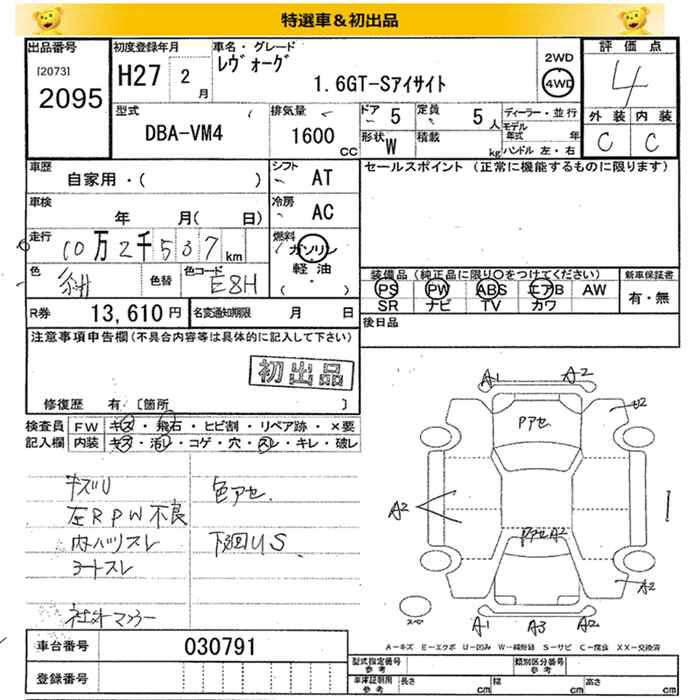 特選車＆初出品
出品番号
[2073]
2095
初度登録年月
H27 2月
車名・グレード
レヴォーグ
1.6GT-Sアイサイト
2WD
4WD
評価点
4
外装 内装
C C
型式
DBA-VM4
排気量
1600 CC
ドア 5
定員 5人
形状 W
積載 kg
ディーラー・並行
モデル年式 年
ハンドル 左・右
車歴
自家用・( )
シフト AT
セールスポイント (正常に機能するものに限ります)
車検
年 月( 日)
冷房 AC
走行 10万2千537km
燃料
ガソリン
軽油
( ・ )
色
色替
色コード E8H
装備品 (純正品に限り○をつけてください)
新車保証書
PS PW ABS エアB AW
SR ナビ TV カワ
有・無
R券 13,610円
名変通知期限 月 日
後日品
注意事項申告欄(不具合内容等は具体的に記入して下さい)
初出品
修復歴 有〔箇所 〕
検査員記入欄
FW キズ・飛石・ヒビ割・リペア跡・×要
内装 キズ・汚レ・コゲ・穴・スレ・キレ・破レ
キズU 色アセ
左RPW不良
内ハリスレ 下回US
シートスレ
社外マフラー
A1 A2
U2
Pアセ
A2
PアセA2
A2
スペ
A1 A3 A2
A－キズ E－エクボ U－凹み W－線跡 S－サビ C－腐食 XX－交換済
車台番号 030791
登録番号
型式指定番号 参考
類別区分番号 参考
車庫証明用 参考
長さ cm
幅 cm
高さ cm